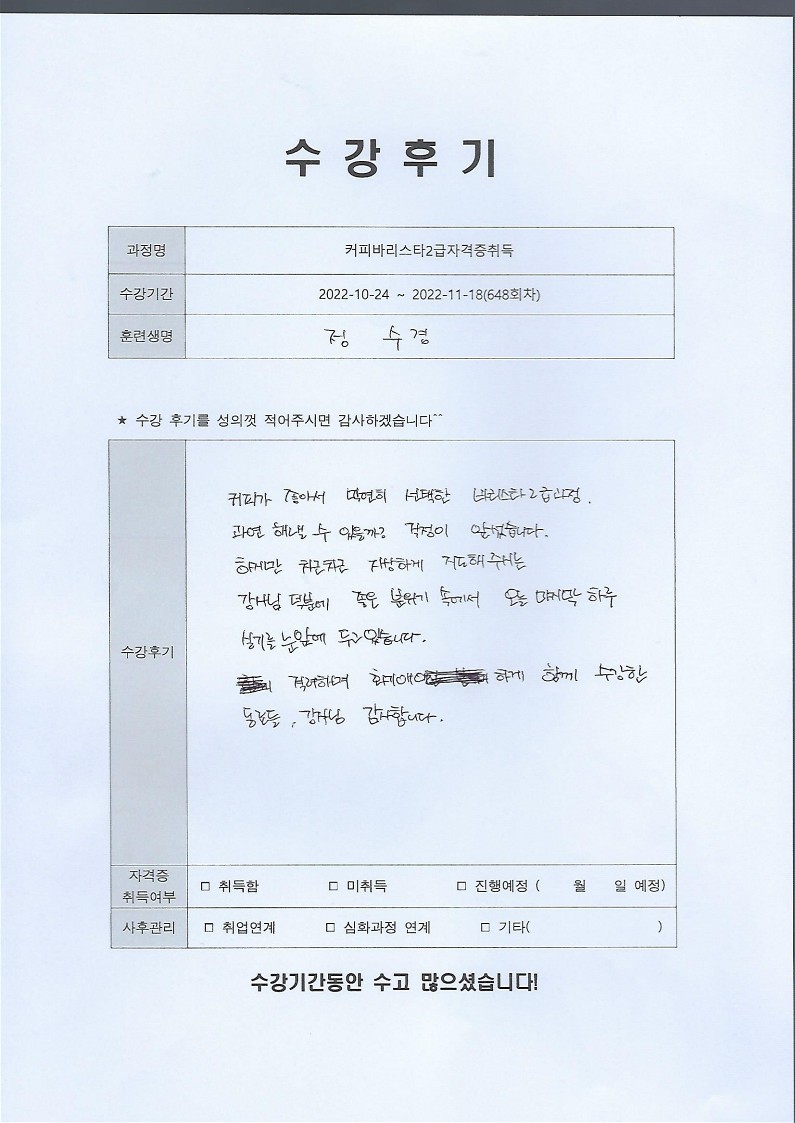 수강후기
과정명 커피바리스타2급자격증취득
수강기간 2022-10-24 ~ 2022-11-18(648회차)
훈련생명 정 수경
★ 수강 후기를 성의껏 적어주시면 감사하겠습니다^^
수강후기
커피가 좋아서 막연히 선택한 바리스타2급과정.
과연 해낼 수 있을까? 걱정이 앞섰습니다.
하지만 차근차근 자상하게 지도해주시는
강사님 덕분에 좋은 분위기 속에서 오늘 마지막 하루
실기를 눈앞에 두고있습니다.
격려하며 화기애애하게 함께 수강한
동료들, 강사님 감사합니다.
자격증
취득여부 □ 취득함 □ 미취득 □ 진행예정 ( 월 일 예정)
사후관리 □ 취업연계 □ 심화과정 연계 □ 기타( )
수강기간동안 수고 많으셨습니다!